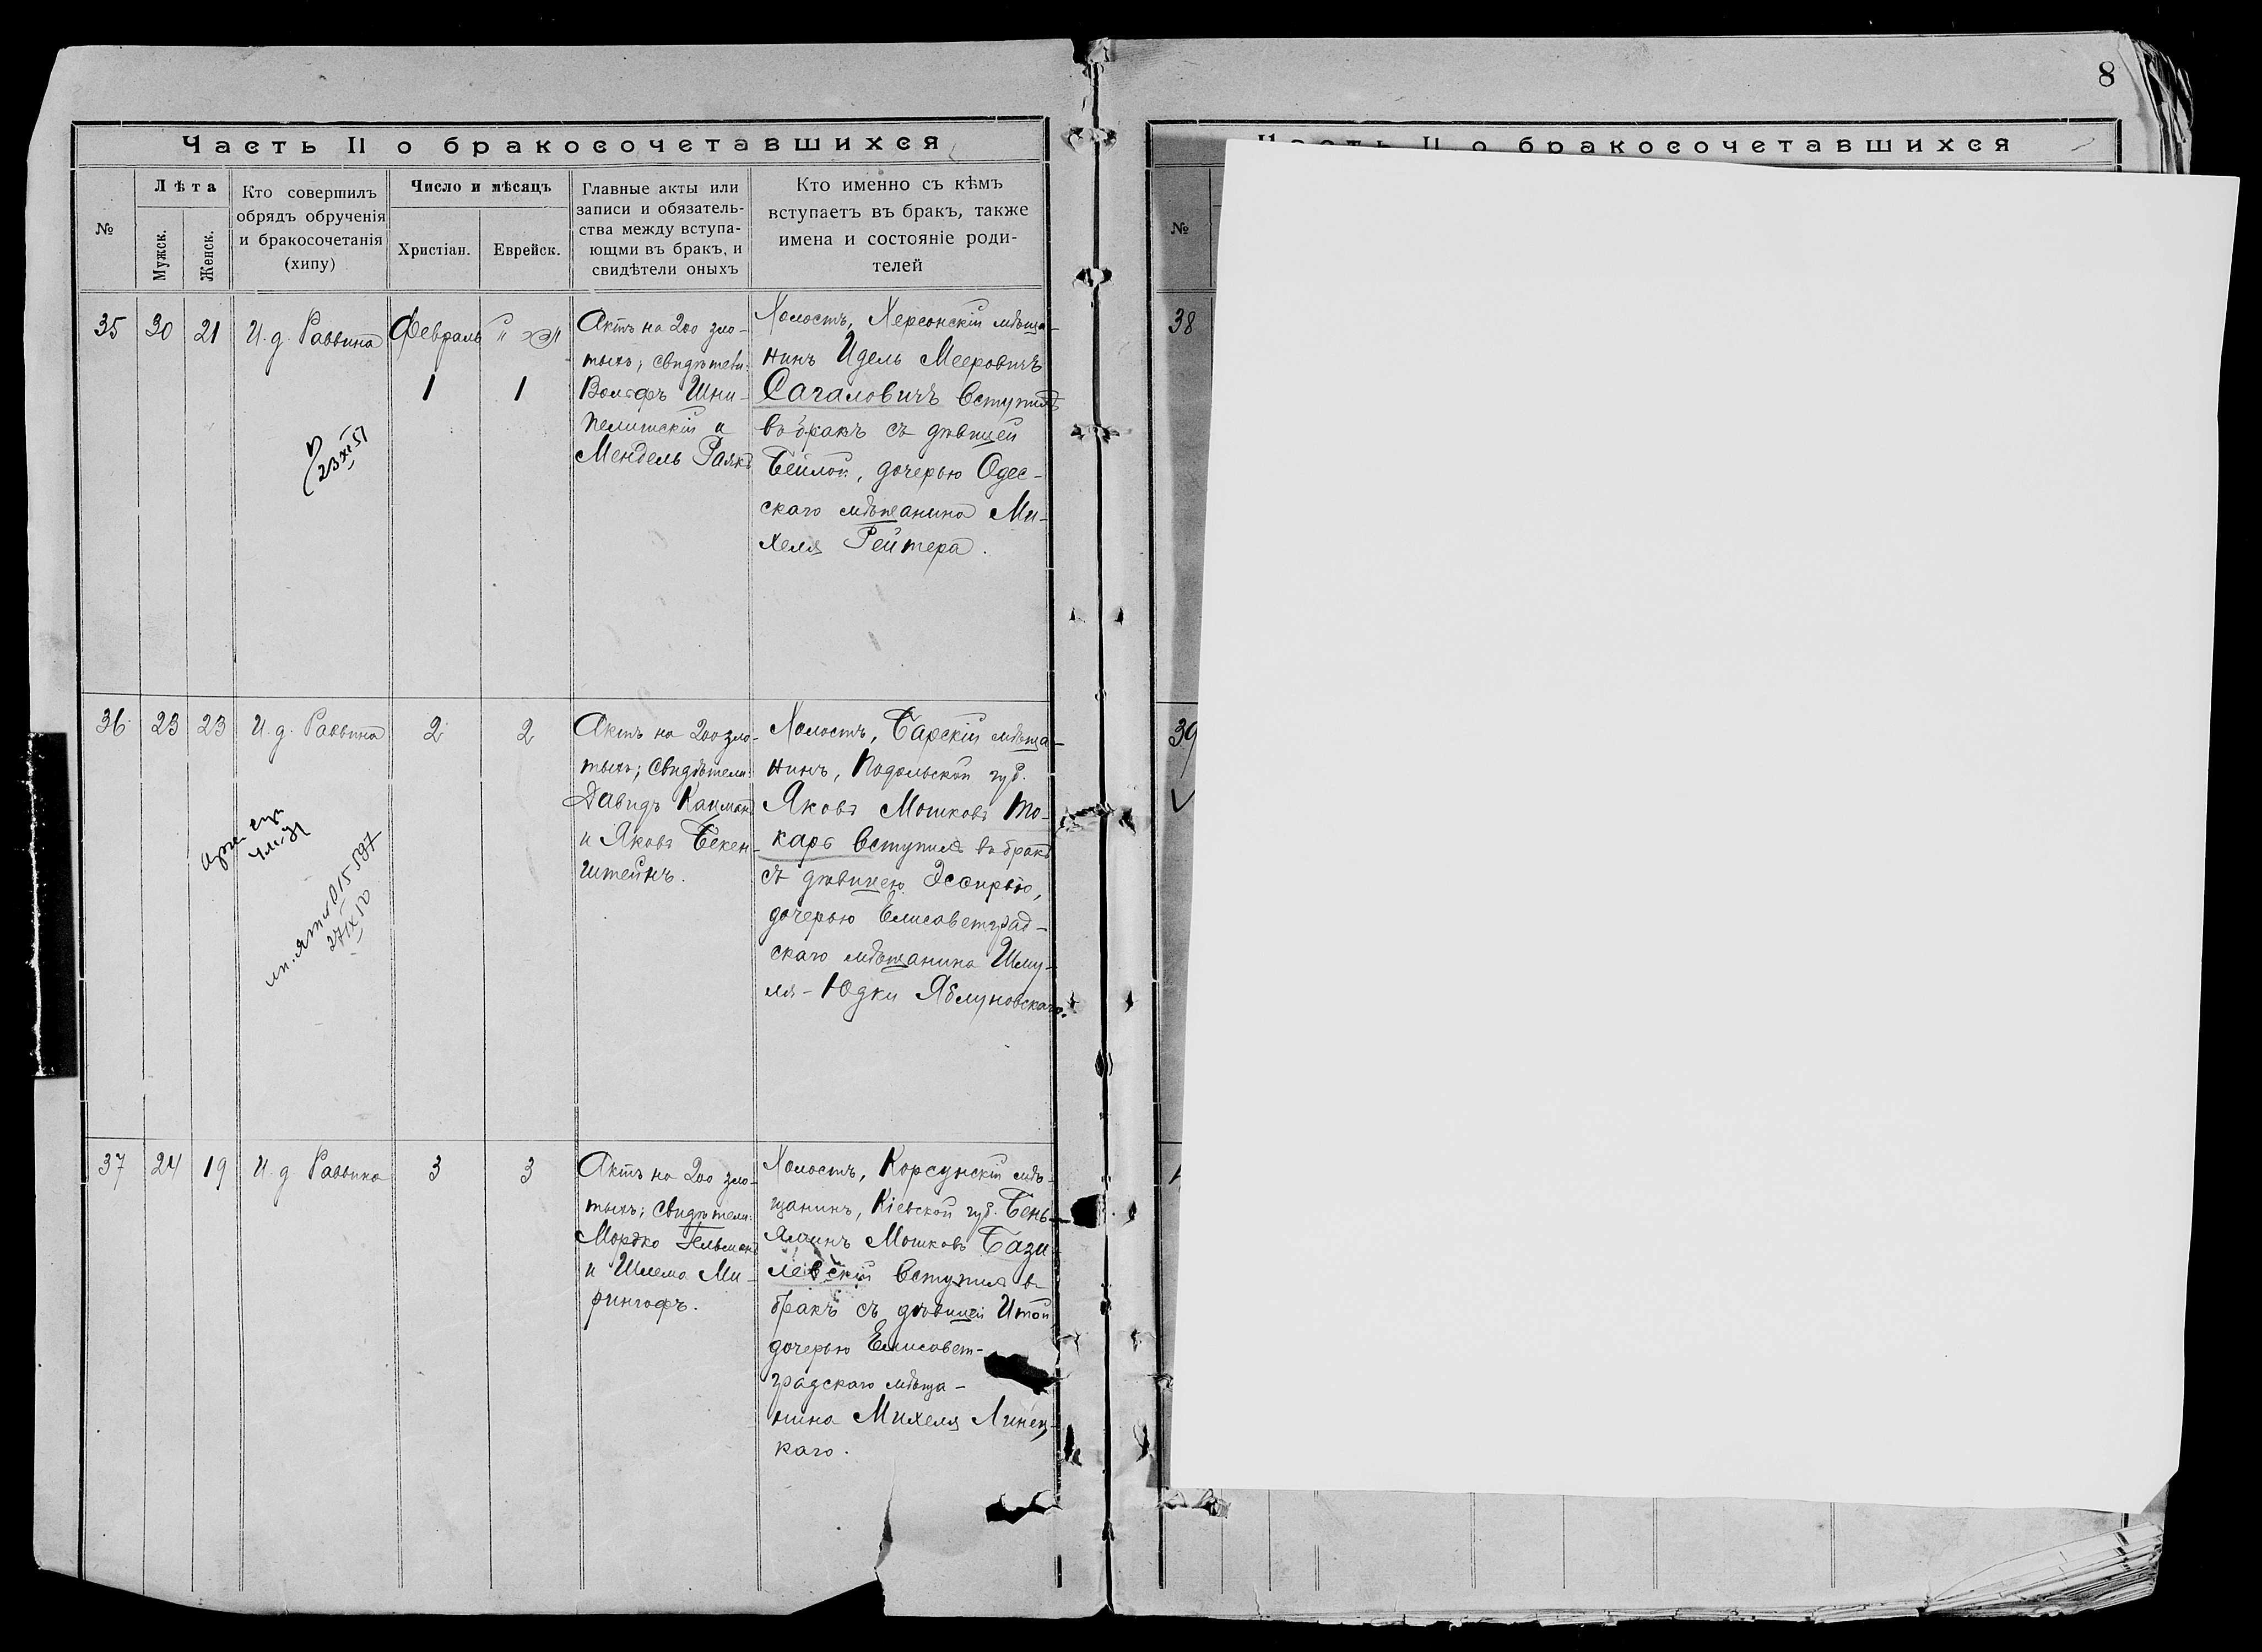 8
Часть II о бракосочетавшихся
№
Лѣта
Мужск.
Женск.
Кто совершилъ
обрядъ обрученія
и бракосочетанія
(хипу)
Число и мѣсяцъ
Христіан.
Еврейск.
Главные акты или
записи и обязатель-
ства между вступа-
ющми въ бракъ, и
свидѣтели оныхъ
Кто именно съ кѣмъ
вступаетъ въ бракъ, также
имена и состояніе роди-
телей
35
30
21
И. д. Раввина
Февраль
1
1
23 XI 51
Актъ на 200 зло-
тыхъ; свидѣтели:
Вольфъ Шни-
пелишскій и
Мендель
Холостъ, Херсонскій мѣща-
нинъ Идель Мееровичъ
Сагаловичъ вступилъ
въ бракъ съ дѣвицей
Бейлой, дочерью Одес-
скаго мѣщанина Ми-
хеля Рейтера.
36
23
23
И. д. Раввина
2
2
015597
27 IX 50
Актъ на 200 зло-
тыхъ; свидѣтели:
Давидъ Кацманъ
и Яковъ Бекен-
штейнъ.
Холостъ, Барскій мѣща-
нинъ, Подольской губ.
Яковъ Мошковъ То-
карь вступилъ въ бракъ
съ дѣвицею Эсѳирью,
дочерью Елисаветград-
скаго мѣщанина Шму-
ля-Юдки Яблуновскаго.
37
24
19
И. д. Раввина
3
3
Актъ на 200 зло-
тыхъ; свидѣтели:
Мордко Гельманъ
и Шлема Ми-
рингофъ.
Холостъ, Корсунскій мѣ-
щанинъ, Кіевской губ. Бень-
яминъ Мошковъ Бази-
левскій вступилъ въ
бракъ съ дѣвицей Итой,
дочерью Елисавет-
градскаго мѣща-
нина Михеля Линец-
каго.
Часть II о бракосочетавшихся
№
38
39